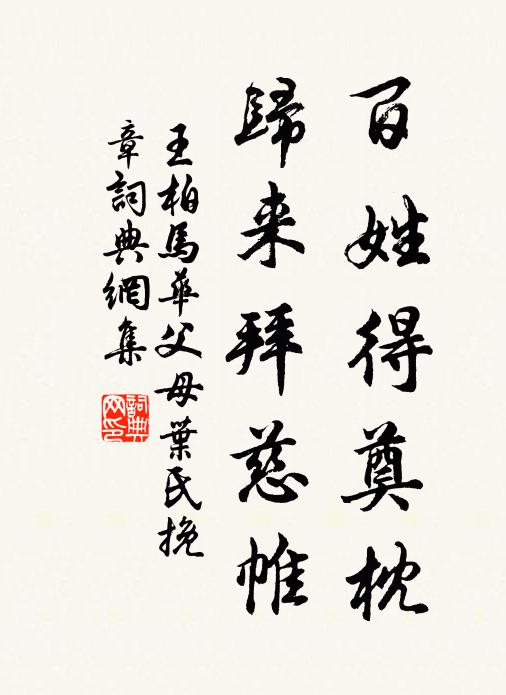 百姓得奠枕
歸来拜慈帷
王柏馬華父母葉氏挽
章詞典網集
詞典
网印